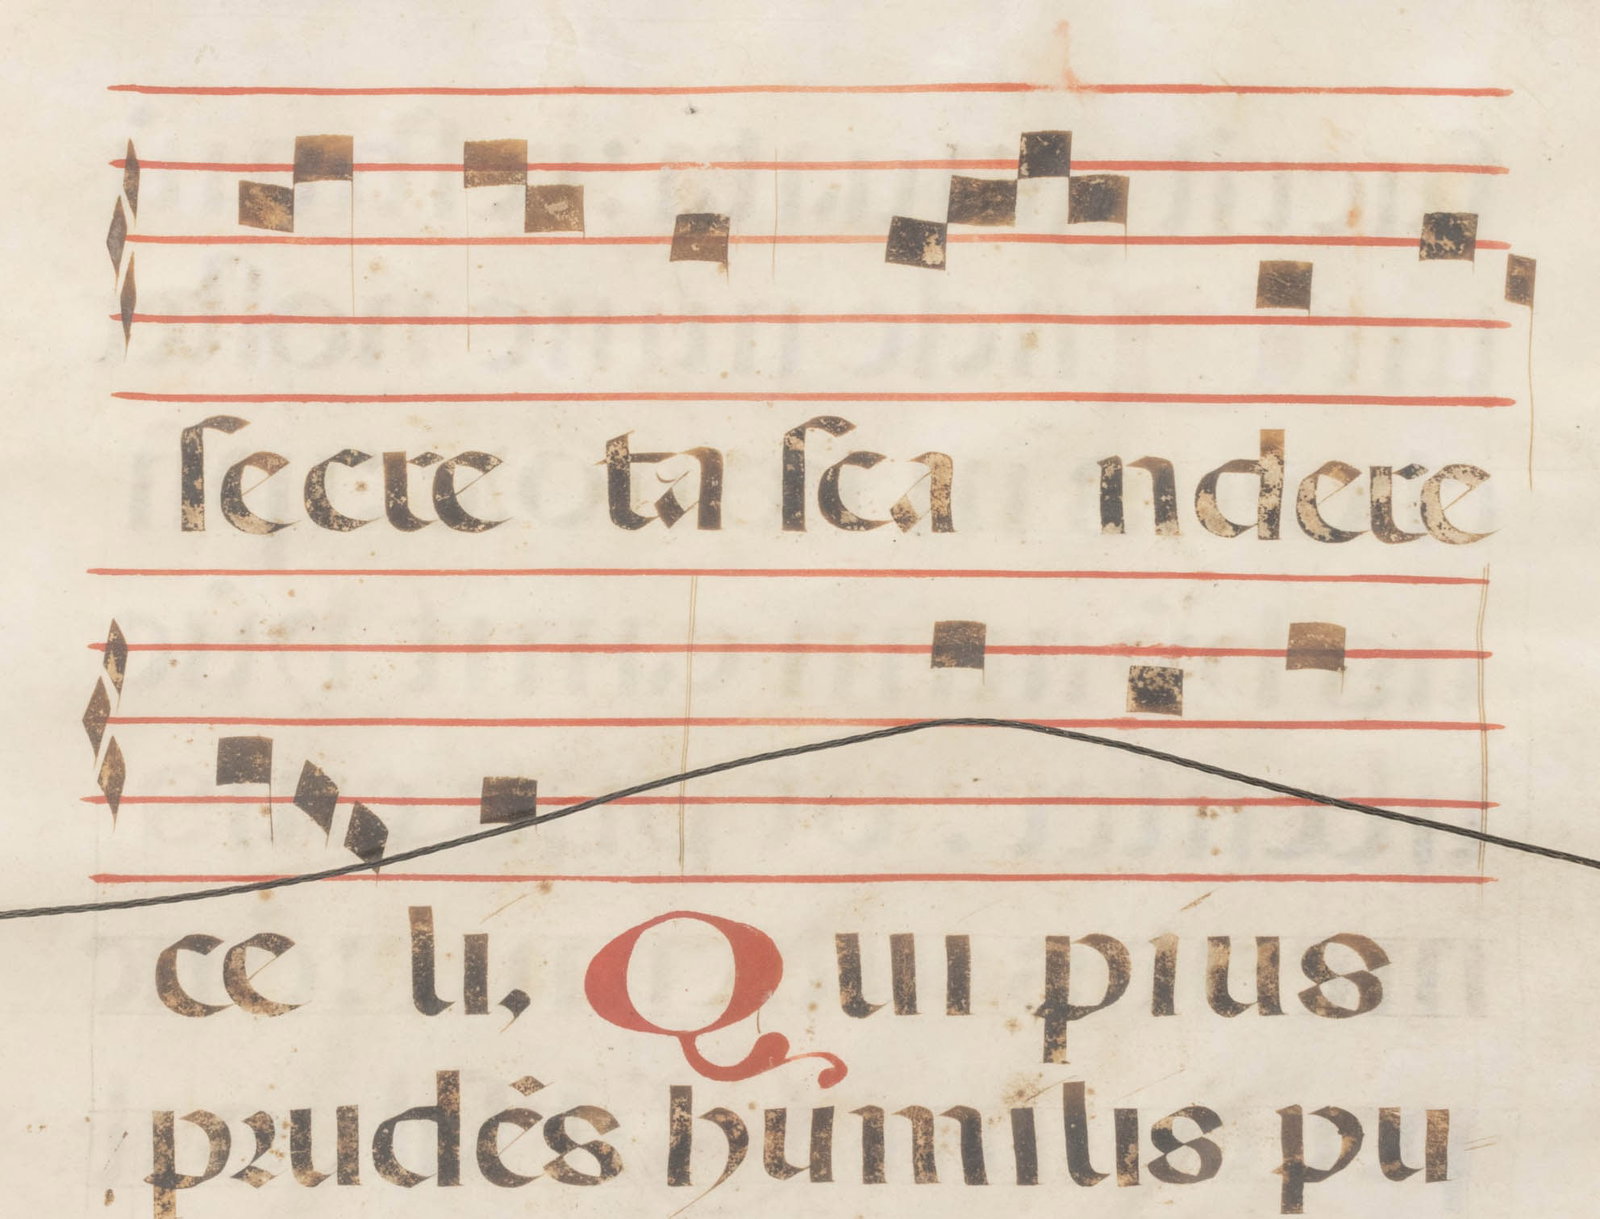 ſecre ta ſca ndere
ce li, Qui pius
prudēs humilis pu